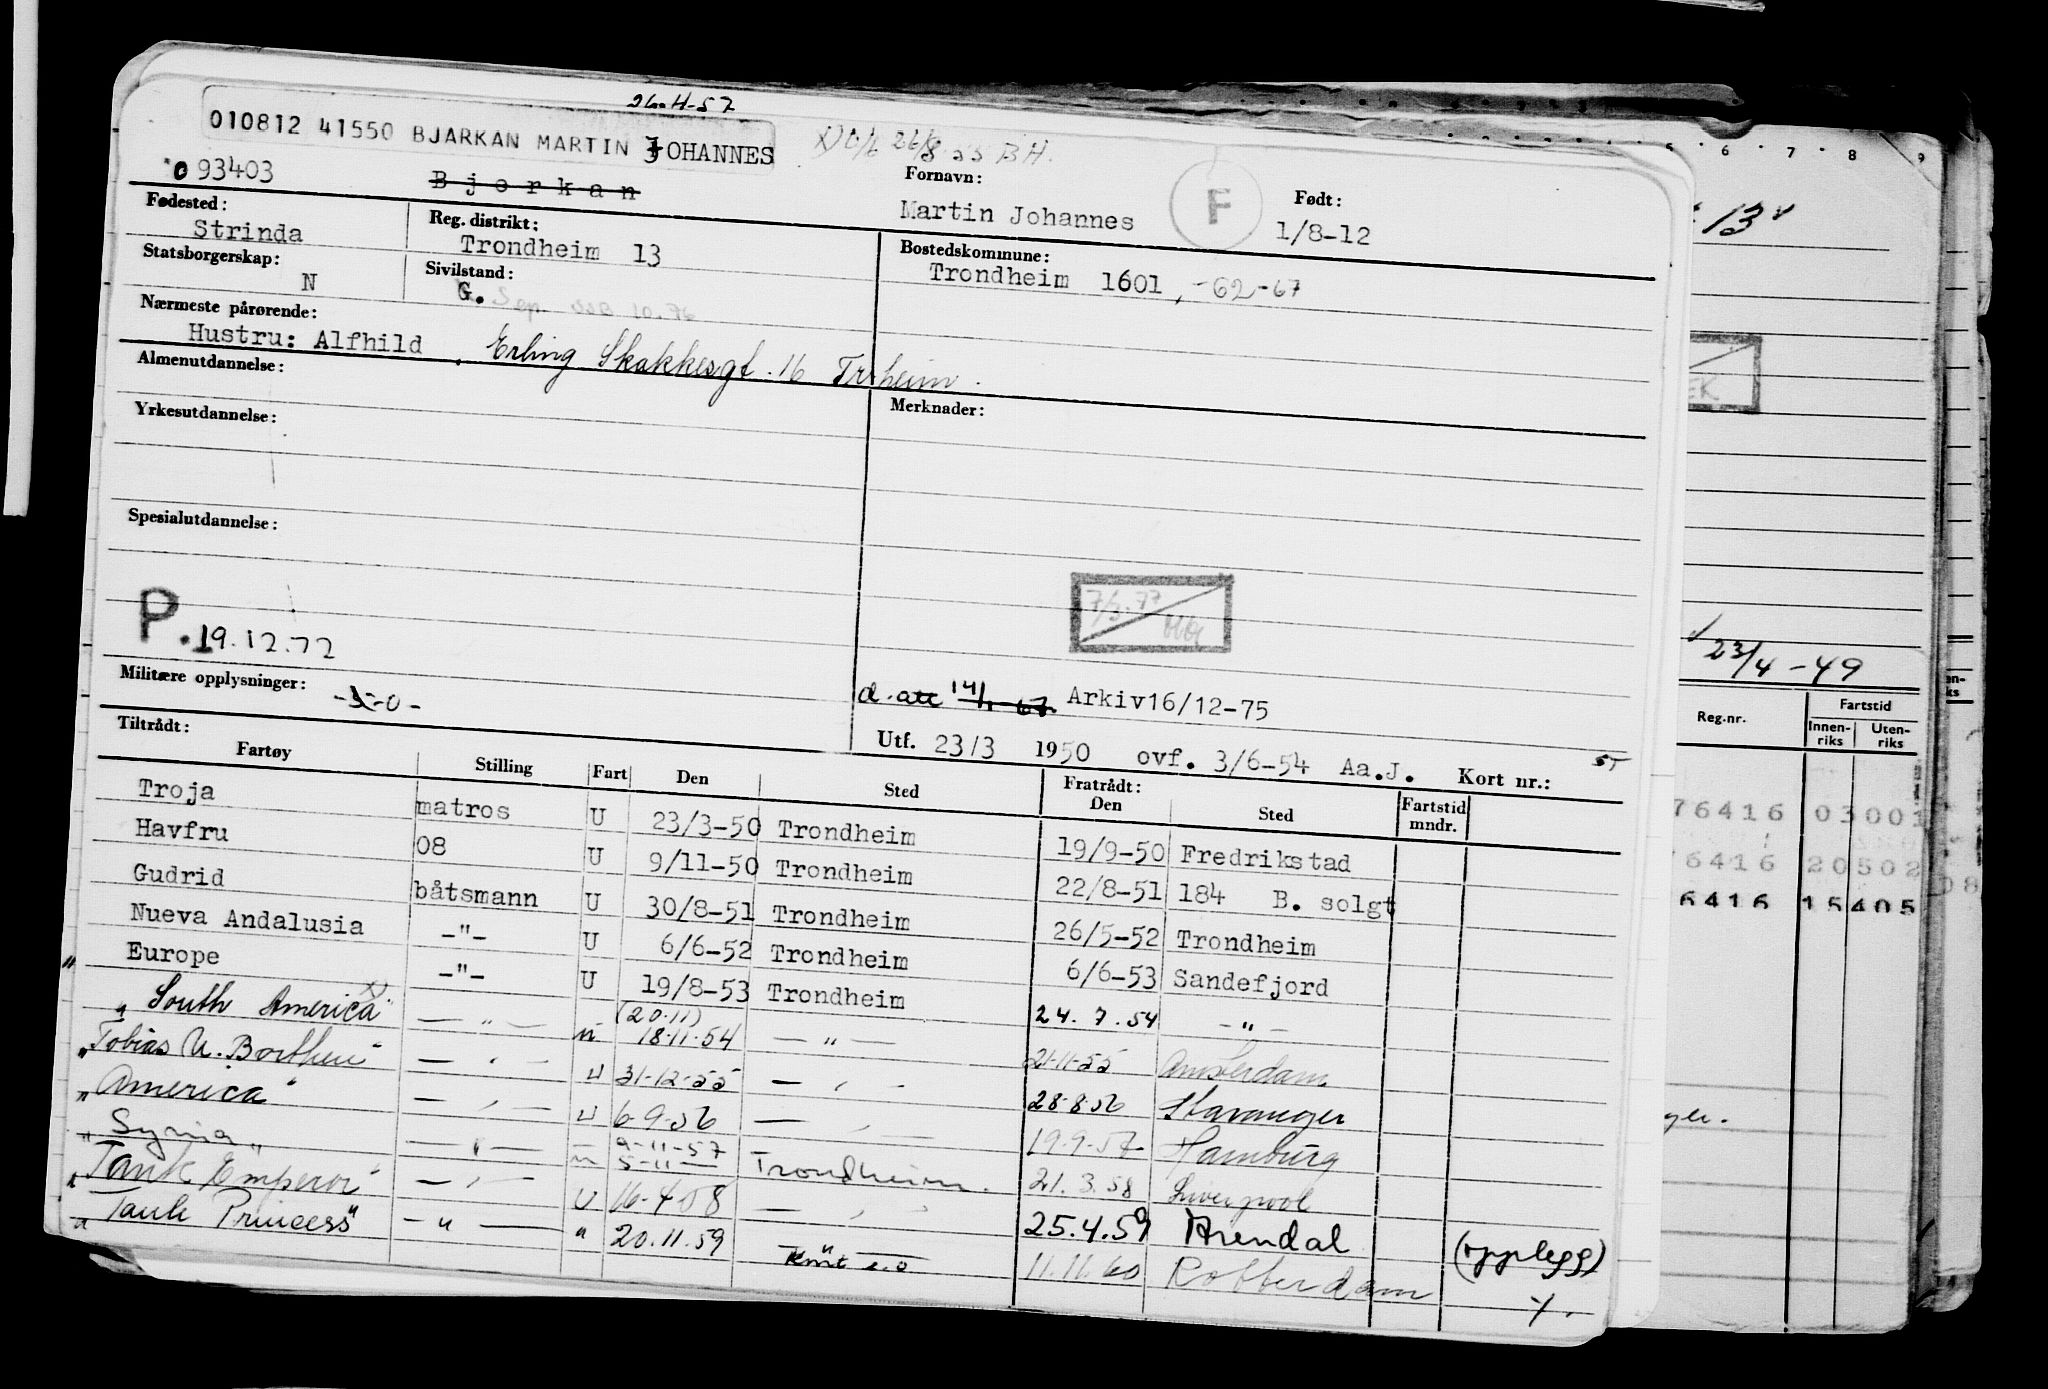 26-4-57
010812 41550 BJARKAN MARTIN JOHANNES
26/8 55 BH.
093403 Bjørkan Fornavn: Martin Johannes F Født: 1/8-12
Fødested: Strinda Reg. distrikt: Trondheim 13 Bostedskommune: Trondheim 1601, -62-67
Statsborgerskap: N Sivilstand: G. Sep. 10.76
Nærmeste pårørende: Hustru: Alfhild, Erling Skakkesgt. 16 Tr.heim.
Almenutdannelse:
Yrkesutdannelse: Merknader:
Spesialutdannelse:
7/3.77
P. 19.12.72
Militære opplysninger: d. att 14/1-67. Arkiv16/12-75
Tiltrådt: Utf. 23/3 1950 ovf. 3/6-54 Aa.J. Kort nr.:
Fartøy Stilling Fart Den Sted Fratrådt: Den Sted Fartstid mndr.
Troja matros U 23/3-50 Trondheim 19/9-50 Fredrikstad
Havfru 08 U 9/11-50 Trondheim 22/8-51 184 B. solgt
Gudrid båtsmann U 30/8-51 Trondheim 26/5-52 Trondheim
Nueva Andalusia -"- U 6/6-52 Trondheim 6/6-53 Sandefjord
Europe -"- U 19/8-53 Trondheim 24.7.54 -"-
"South America" x) -"- u (20.11) 18.11.54 -"- 21-11-55 Amsterdam
"Tobias U. Borthen" -"- u 31-12-55 -"- 28-8 56 Stavanger
"America" -"- u 6-9-56 -"- 19-9-57 Hamburg
"Syria" -"- u 9-11-57 5-11 Trondheim. 21.3.58 Liverpool
"Tank Emperor" -"- U 16-4-58 -"- 25.4.59 Arendal (opplegg)
"Tank Princess" -"- " 20.11.59 11.11.60 Rotterdam
5 6 7 8 9
13
23/4-49
Reg.nr. Fartstid
Innen-riks Uten-riks
76416 03001
6416 20502
6416 15405
08